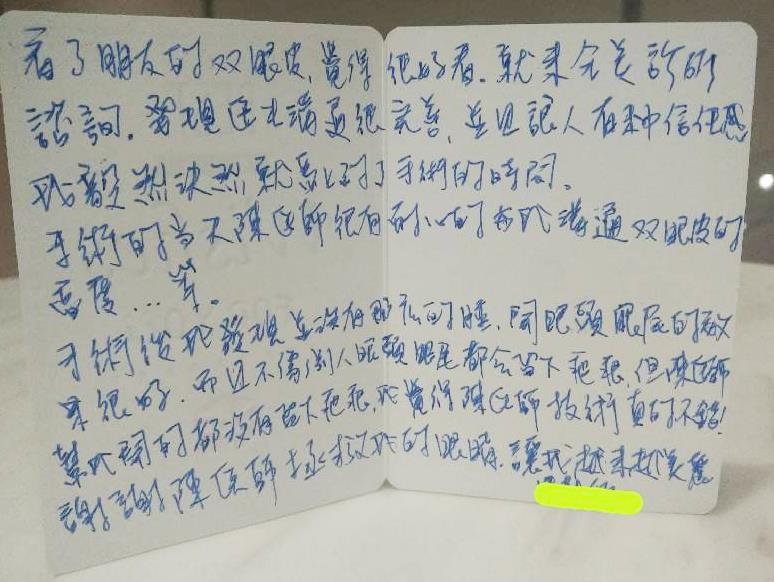 看了朋友的双眼皮,覺得很好看.就來完美診所
諮詢.發現医生溝通很完善,並且讓人有種信任感
我毅然決然就馬上訂了手術的時間。
手術的当天陳医師很有耐心的和我溝通双眼皮的
寬度...等。
手術後我發現並沒有那么的腫.開眼頭眼尾的效
果很好.而且不像別人眼頭眼尾都会留下疤痕,但陳医師
幫我開的都沒有留下疤痕,我覺得陳医師技術真的不錯!
謝謝陳医師拯救我的眼睛.讓我越來越美麗